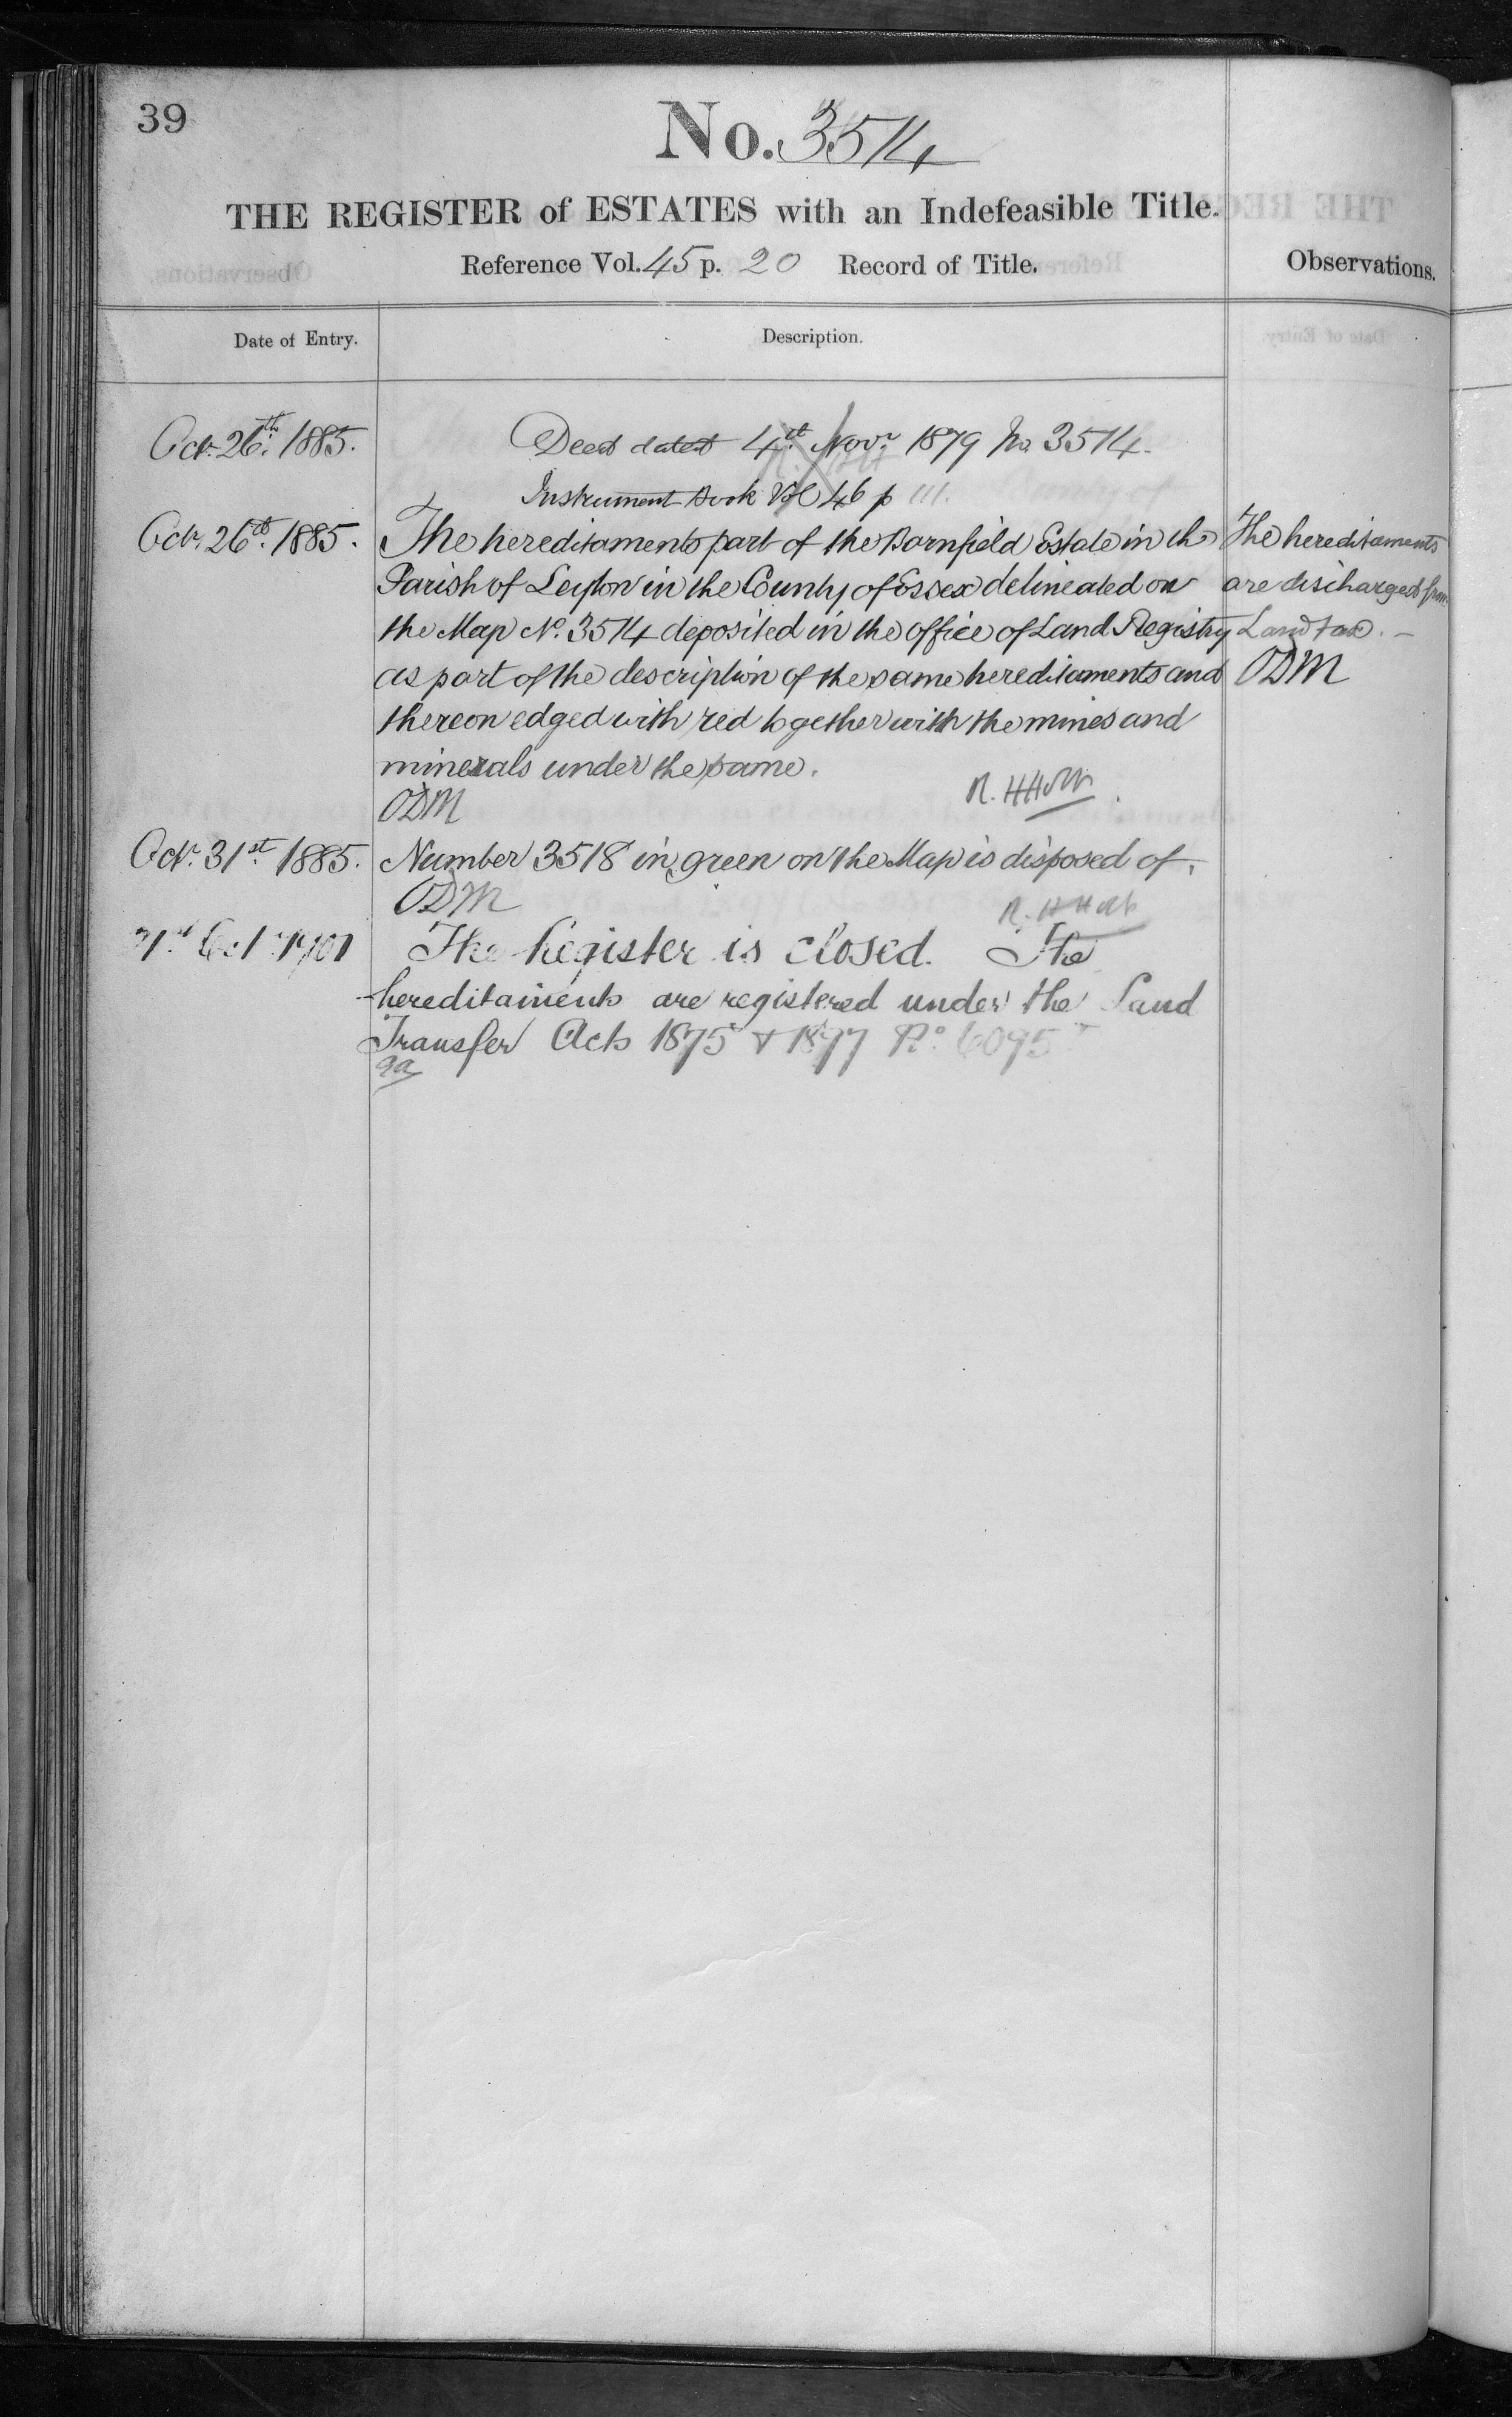 39
No. 3514
THE REGISTER of ESTATES with an Indefeasible Title.
Reference Vol. 45 p. 20 Record of Title.
Observations.
Date of Entry.
Description.
Octr. 26th. 1885.
Deed dated 4th Novr. 1879 No. 3514.
Instrument Book Vol 46 p 111.
Octr. 26th. 1885.
The hereditaments part of the Barnfield Estate in the
Parish of Leyton in the County of Essex delineated on
the Map No. 3514 deposited in the office of Land Registry
as part of the description of the same hereditaments and
thereon edged with red together with the mines and
minerals under the same.
ODM
R. H Holt
The hereditaments
are discharged from
Land tax. –
ODM
Octr. 31st. 1885.
Number 3518 in green on the Map is disposed of.
ODM
R. H Holt
Octr 1901
The Register is closed. The
hereditaments are registered under the Land
Transfer Acts 1875 & 1897 No. 6095